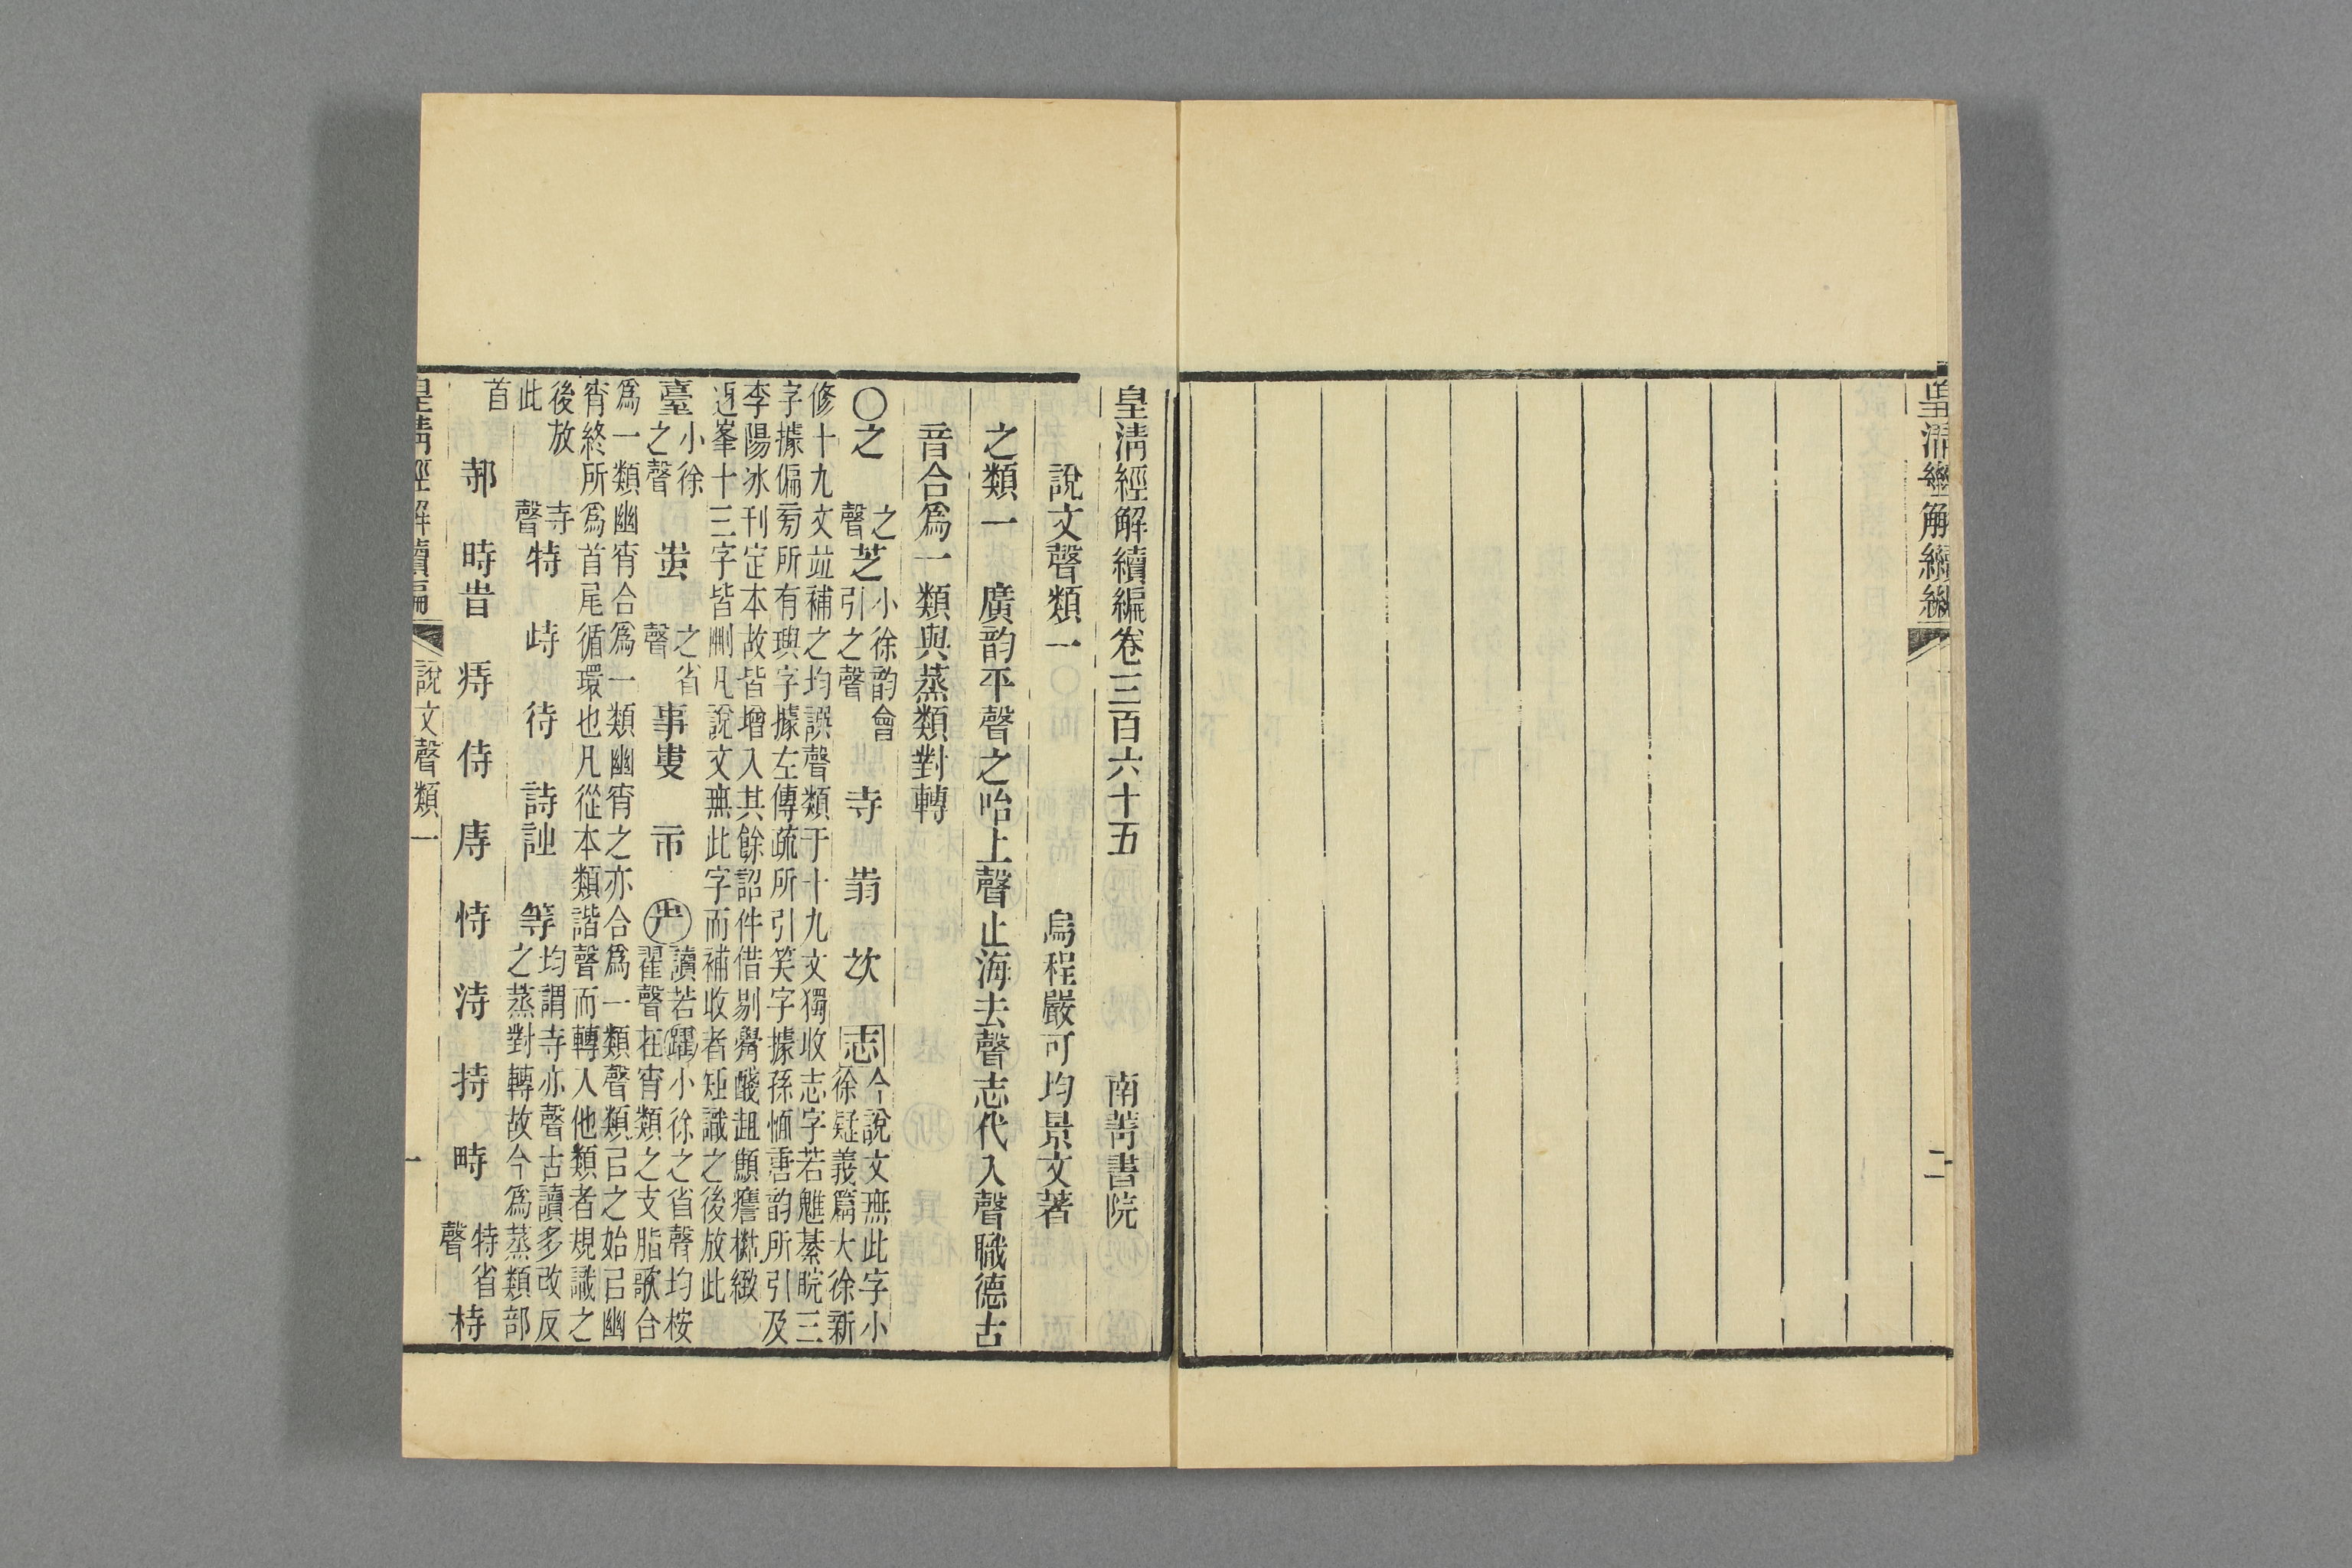 皇清經解續編
二
皇清經解續編卷三百六十五　南菁書院
說文聲類一　烏程嚴可均景文著
之類一　廣韵平聲之咍上聲止海去聲志代入聲職德古
音合爲一類與蒸類對轉
〇之　之聲　芝　小徐韵會引之聲　寺　𦐇　㰞　志　今說文無此字小徐疑義篇大徐新
修十九文並補之均誤聲類于十九文獨收志字若魋綦睆三
字據偏旁所有璵字據左傳疏所引笑字據孫愐唐韵所引及
李陽冰刊定本故皆增入其餘詔件借剔𦥯醆趄顦㾾檆緻
迌峯十三字皆刪凡說文無此字而補收者矩識之後放此
臺　小徐之聲　蚩　之省聲　事叓　市　讀若躍小徐之省聲均桉
翟聲在宵類之支脂歌合
爲一類幽宵合爲一類幽宵之亦合爲一類聲類㠯之始㠯幽
宵終所爲首尾循環也凡從本類諧聲而轉入他類者規識之
後放此　寺聲　特　峙　待　詩𧥳　等　均謂寺亦聲古讀多改反
之蒸對轉故今爲蒸類部
首　邿　時旹　痔　侍　庤　恃　洔　持　畤　特省聲　㭙
皇清經解續編　說文聲類一　一